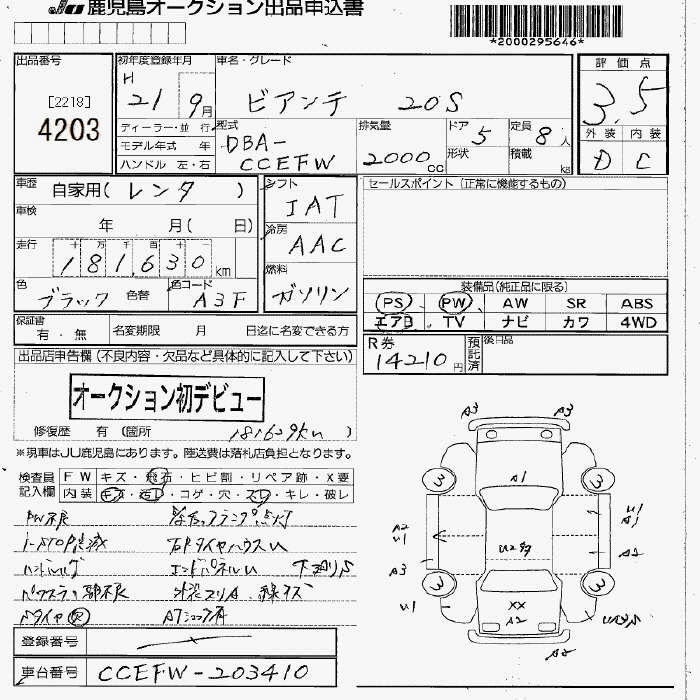 JU 鹿児島オークション出品申込書
*2000295646*
出品番号
[2218]
4203
初年度登録年月
H 21 9月
車名・グレード
ビアンテ 20S
評価点
3.5
外装 内装
D C
ディーラー・並行
モデル年式 年
ハンドル 左・右
型式
DBA-
CCEFW
排気量
2000cc
ドア 5
形状
定員 8人
積載 kg
車歴 自家用(レンタ )
車検 年 月( 日)
走行 十 万 千 百 十
181,630km
色 ブラック 色替
色コード A3F
シフト
IAT
冷房
AAC
燃料
ガソリン
セールスポイント(正常に機能するもの)
装備品(純正品に限る)
PS PW AW SR ABS
エアB TV ナビ カワ 4WD
保証書 有・無
名変期限 月 日迄に名変できる方
R券
14210円
預託済
後日品
出品店申告欄(不良内容・欠品など具体的に記入して下さい)
オークション初デビュー
修復歴 有(箇所 )
181629km
※現車はJU鹿児島にあります。陸送費は落札店負担となります。
検査員記入欄
FW キズ・飛石・ヒビ割・リペア跡・X要
内装 キズ・汚レ・コゲ・穴・スレ・キレ・破レ
PW不良
i-STOP点滅 右Fタイヤハウスu
エンドパネルu
登録番号
車台番号 CCEFW-203410
A3 A3
3 3
A1
A2
U1
U1
A1
U2
A2
A3
3 3
U1
XX
A2
A2